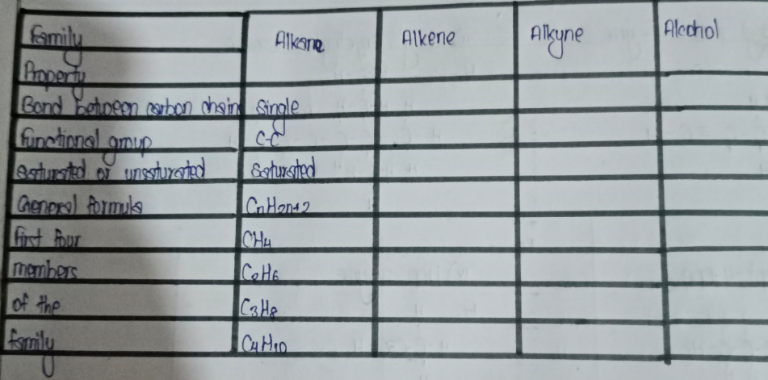 Family Alkane Alkene Alkyne Alcohol
Property
Bond between carbon chain single
Functional group C-C
saturated or unsaturated saturated
General formula CnH2n+2
First four CH4
members C2H6
of the C3H8
family C4H10